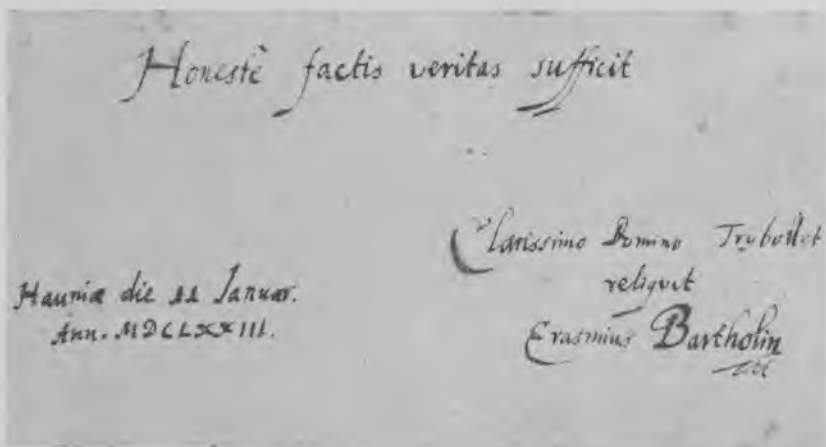 Honestè factis veritas sufficit
Hauniæ die 11 Januar.
Ann. MDCLXXIII.
Clarissimo Domino
reliquit
Erasmius Bartholin